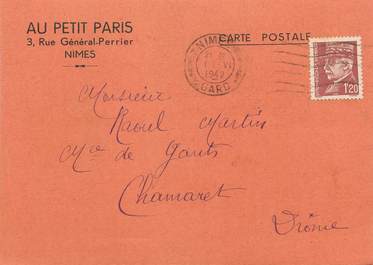 AU PETIT PARIS
3, Rue Général-Perrier
NIMES
CARTE POSTALE
NIMES
VI
1942
GARD
1f20
Monsieur
Raoul Martin
Mce de Gants
Chamaret
Drôme